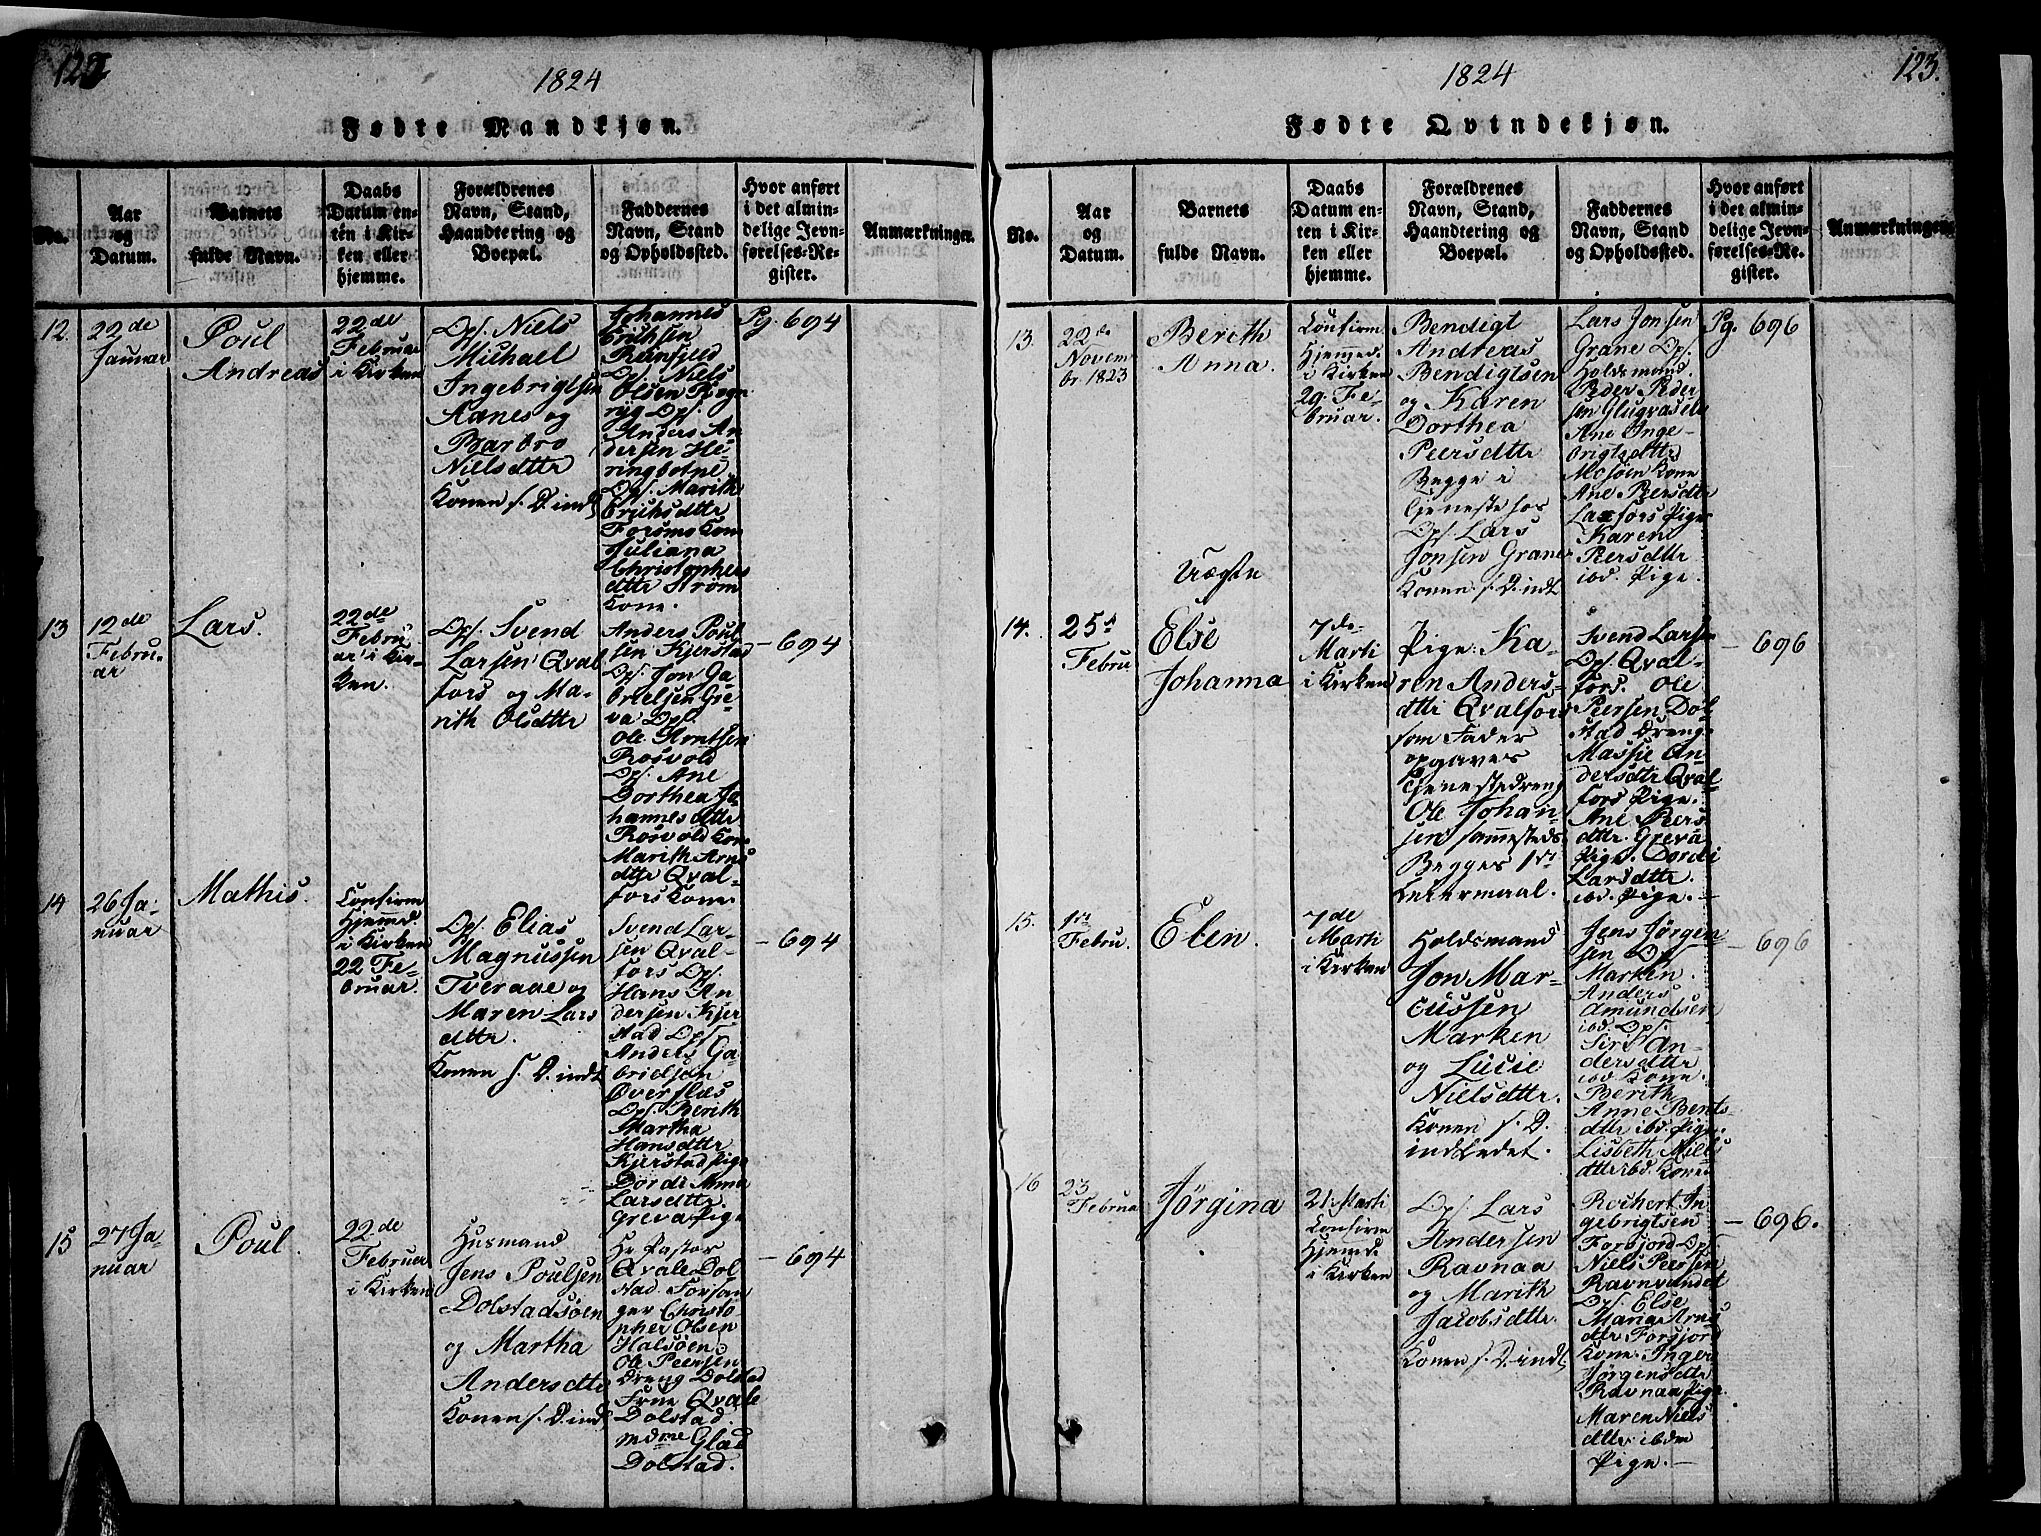 122
1824
Fødte Mandkjøn.
No.
Aar
og
Datum.
Barnets
fulde Navn.
Daabs
Datum en-
ten i Kir-
ken eller
hjemme.
Forældrenes
Navn, Stand,
Haandtering og
Boepæl.
Faddernes
Navn, Stand
og Opholdssted.
Hvor anført
i det almin-
delige Jevn-
førelses-Re-
gister.
Anmærkninger.
12.
22de
Januar
Poul
Andreas
22de
Februar
i Kirken
Ops. Niels
Michael
Ingebrigtsen
Aanes og
Barbro
Nielsdttr
Konen s. D. indl
Johannes
Erichsen
Remfjeld
Ops. Niels
Olsen Regn
ryg Ops.
Anders An
dersen He
ringbotne
Ops. Marith
Erichsdttr
Forsmo Kone
Juliana
Christophers
dttr Strøm
Kone.
Pg. 694
13
12de
Febru-
ar
Lars.
22de
Febru
ar i Kir-
ken.
Ops. Svend
Larsen Qval
fors og Ma-
rith Olsdttr
Anders Poul
sen Kjerstad
Ops. Jon Ga-
brielsen Gre
va Ops.
Ole Arntsen
Rosvold
Ops. Ane
Dorthea Jo
hannesdttr
Rosvold Kone
Marith Arns
dttr Qval-
fors Kone.
- 694
14
26 Ja-
nuar
Mathis.
Confirm
Hjemmed.
i Kirken
22 Fe-
bruar.
Ops. Elias
Magnussen
Tveraae og
Maren Lars
dttr.
Konen s. D. indl
Svend Lar-
sen Qval-
fors Ops.
Hans An
dersen Kjer
stad Ops.
Anders Ga-
brielsen
Øverflæs
Ops. Berith
Martha
Hansdttr
Kjerstad Pige
Dordi Anna
Larsdttr.
Greva Pige
- 694
15
27 Ja-
nuar
Poul.
22de
Februar
i Kirken
Husmand
Jens Poulsen
Dolstadsøen
og Martha
Andersdttr
Konen s. D. indl
Hr Pastor
Qvale Dol
stad. Forsan
ger Christo
pher Olsen
Halsøen.
Ole Peersen
Dreng Dolstad
Frue Qvale
Dolstad.
Mdme Glad
Dolstad.
- 694
123.
1824
Fødte Qvindekjøn.
No.
Aar
og
Datum.
Barnets
fulde Navn.
Daabs
Datum en-
ten i Kir-
ken eller
hjemme.
Forældrenes
Navn, Stand,
Haandtering og
Boepæl.
Faddernes
Navn, Stand
og Opholdssted.
Hvor anført
i det almin-
delige Jevn-
førelses-Re-
gister.
Anmærkninger
13.
22de
Novem
br. 1823
Berith
Anna.
Uægte
Confirm
Hjemmed.
i Kirken
29. Fe-
bruar.
Bendigt
Andreas
Bendigtsen
og Karen
Dorthea
Peersdttr
Begge i
tjeneste hos
Ops. Lars
Jonsen Grane
Konen s. D. indl
Lars Jonsen
Grane Ops.
Holdsmand.
Peder Peder
sen Glugvasele
Ane Inge-
brigtsdttr
Mosøen Kone
Ane Peersdtr
Laxfors Pige
Karen
Peersdttr
ibd. Pige.
Pg. 696
14.
25de
Febru
Else
Johanna
7de
Marti
i Kirken
Pige Ka-
ren Anders-
dttr Qvalfors
som Fader
opgaves
Tjenestedreng
Ole Johan-
sen sammesteds
Begges 1ste
Leiermaal.
Svend Larsen
Ops. Qval-
fors. Ole
Peersen Dol-
stad Dreng.
Massie An-
dersdttr Qval-
fors Pige.
Ane Peers
dttr. Greva
Pige. Dordi
Larsdttr.
ibd. Pige. -
- 696
15.
1ste
Febru.
Elen.
7de
Marti
i Kirken
Holdsmand
Jon Mar-
cussen
Marken
og Lucie
Nielsdttr.
Konen s. D.
indledet.
Jens Jørgen-
sen Ops
Marken.
Anders
Amundsen
ibd. Ops.
Siri An-
dersdttr
ibd. Kone.
Berith
Anne Bents
dttr ibd. Pige.
Lisbeth Niels
dttr ibd. Kone.
- 696
16
23
Februa
Jørgina
21. Marti
Confirm
Hjemd.
i Kirken
Ops. Lars
Andersen
Ravnaa
og Marith
Jacobsdttr.
Konen s. D. indl.
Rochert In
gebrigtsen
Forsjord Ops.
Niels Peersen
Ravnvandet
Ops. Else
Maria Arns
dttr Forsjord
Kone. Inger
Jørgensdttr
Ravnaa Pige
Maren Niels
dttr. ibdm
Pige. -
- 696.